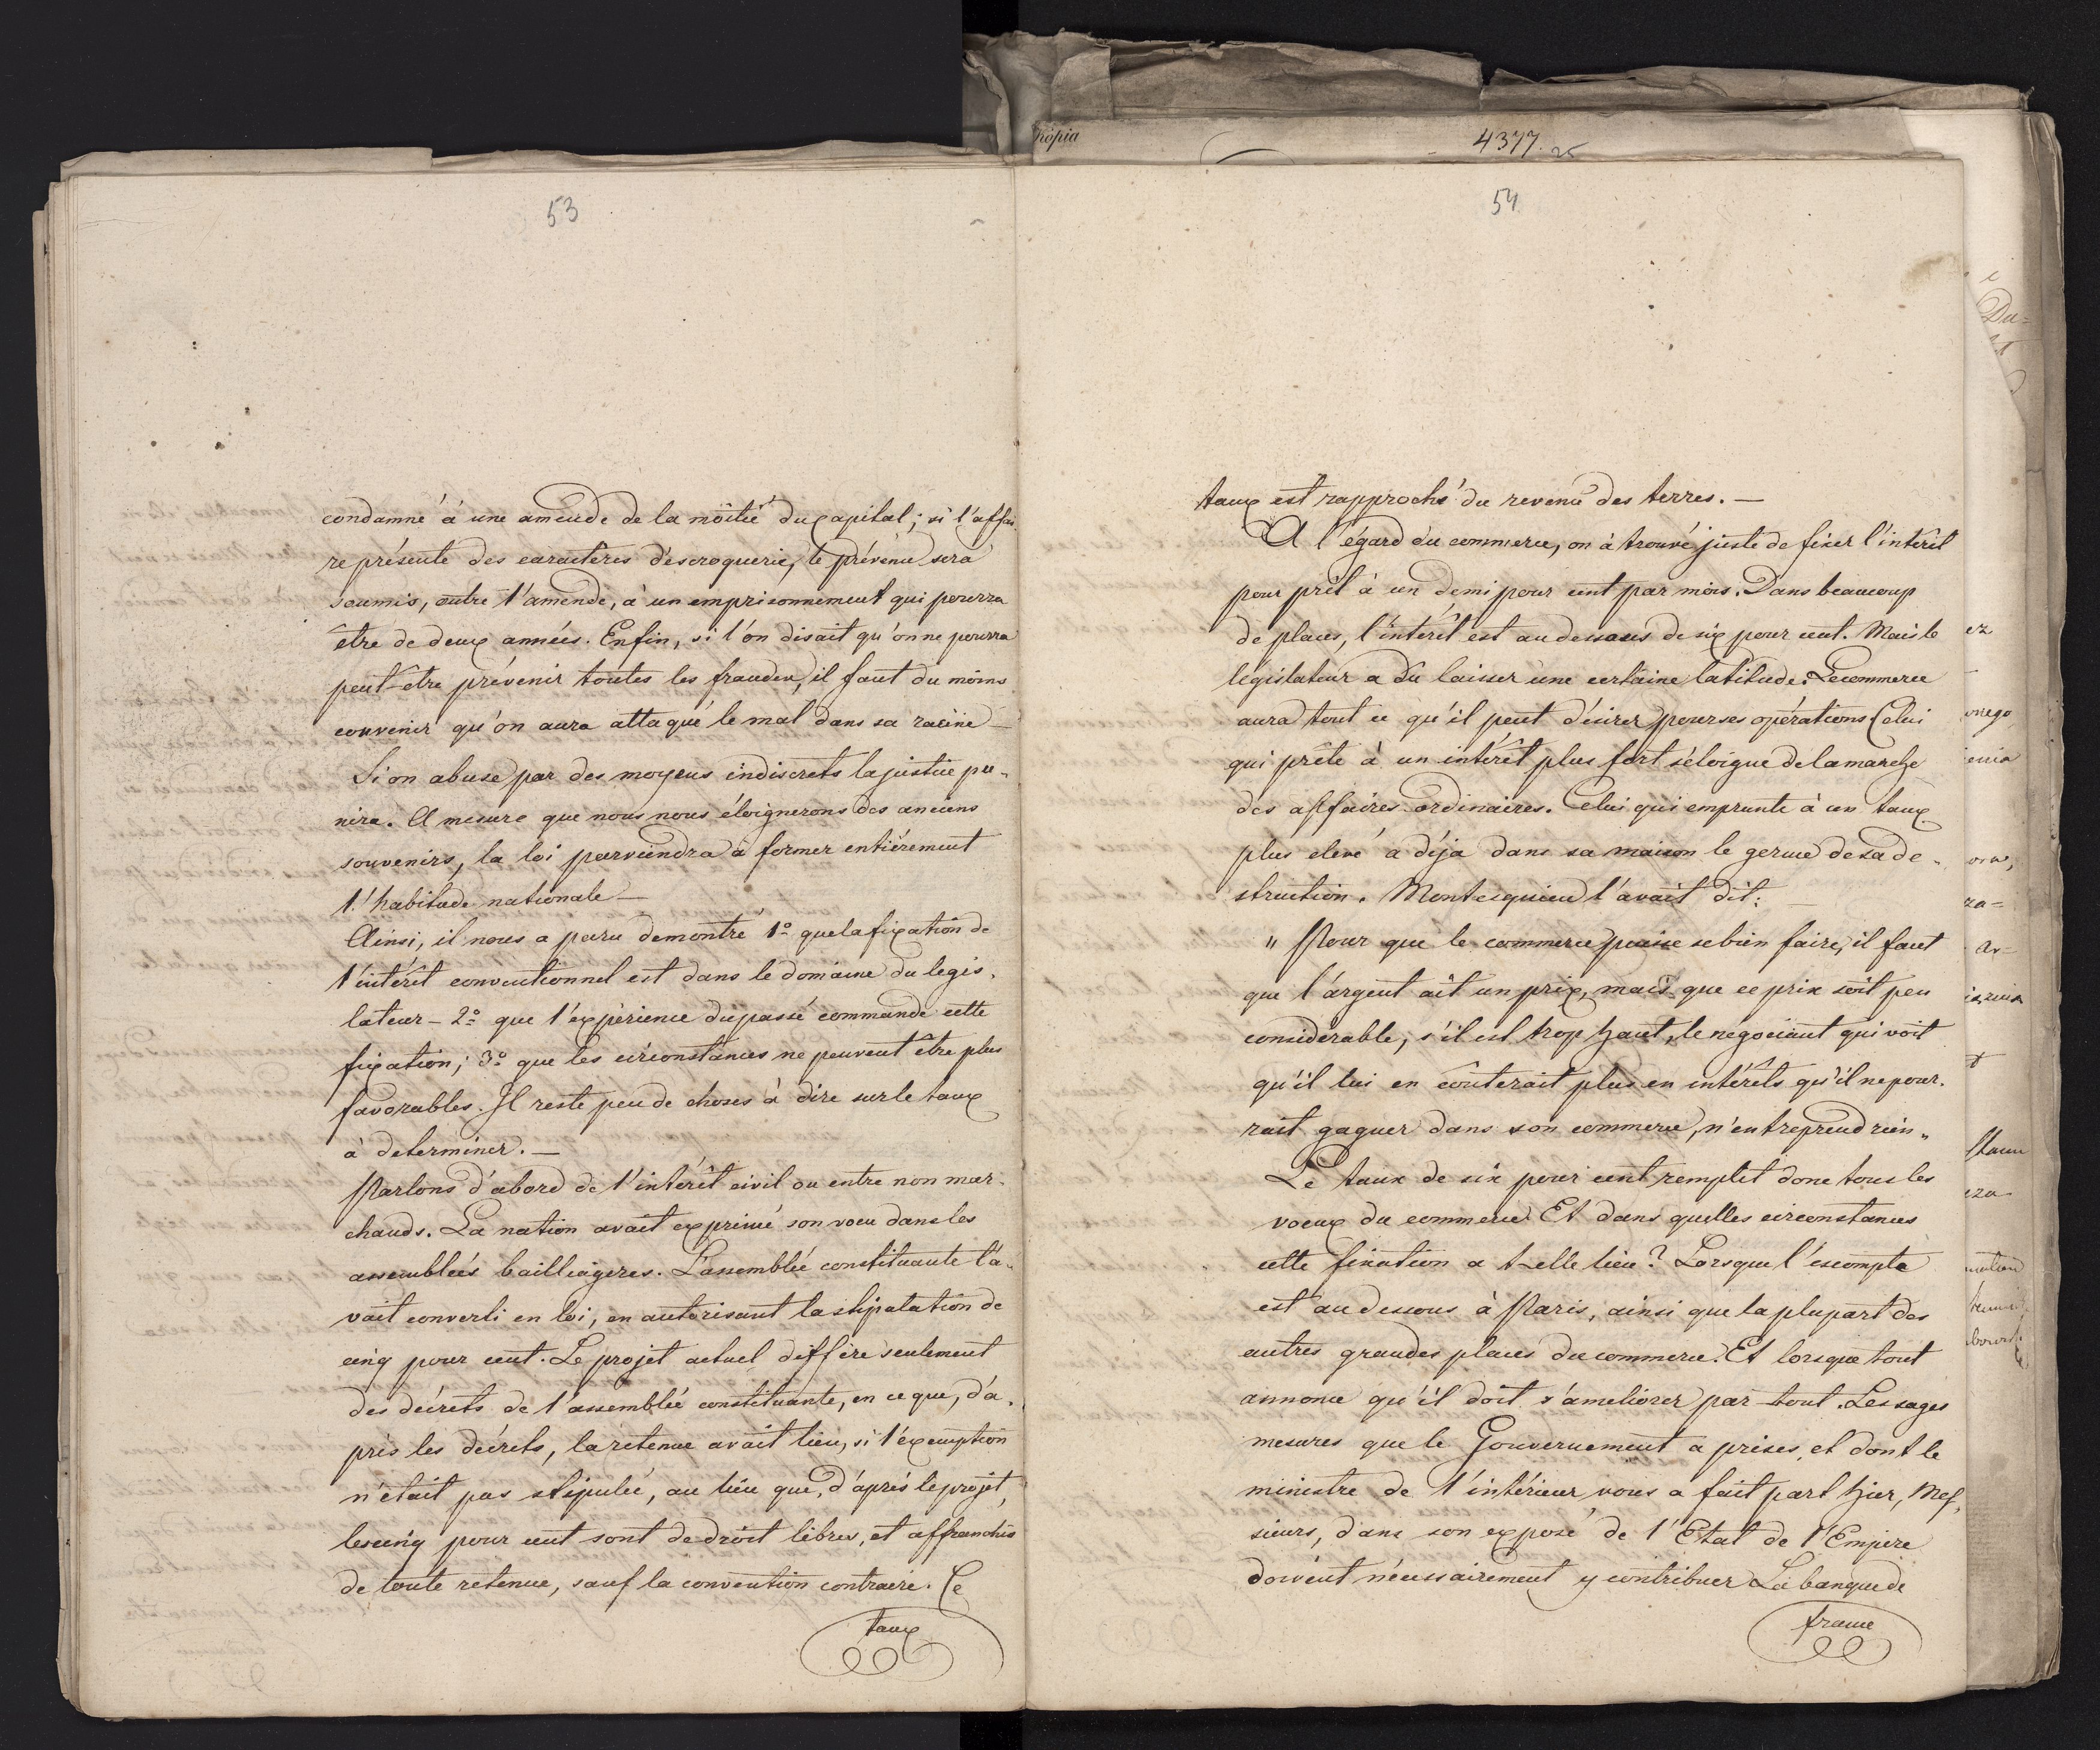 53
condamné à une amende de la moitié du capital; si l'affai
représente des caractères d'escroquerie, le prévenu sera
soumis, outre l'amende, à un emprisonnement qui pourra
être de deux années. Enfin, si l'on disait qu'on ne pourra
peut-être prévenir toutes les fraudes, il faut du moins
convenir qu'on aura attaqué le mal dans sa racine —
Si on abuse par des moyens indiscrets la justice pu-
nira. A mesure que nous nous éloignerons des anciens
souvenirs, la loi parviendra à former entiérement
l'habitude nationale —
Ainsi, il nous a paru demontré 1º que la fixation de
l'intérêt conventionnel est dans le domaine du legis-
lateur - 2º que l'expérience du passé commande cette
fixation; 3º que les circonstances ne peuvent être plus
favorables. Il reste peu de choses à dire sur le taux
à determiner. —
Parlons d'abord de l'intérêt civil ou entre non mar-
chands. La nation avait exprimé son voeu dans les
assemblées bailliagères. L'assemblée constituante l'a-
vait converti en loi, en autorisant la stipulation de
cinq pour cent. Le projet actuel differe seulement
des décrets de l'assemblée constituante, en ce que, d'a-
près les décrets, la retenue avait lieu, si l'exemption
n'était pas stipulée, au lieu que, d'après le projet,
les cinq pour cent sont de droit libres, et affranchis
de toute retenue, sauf la convention contraire. Ce
taux
Kopia
4377. 25
54
taux est rapproché du revenu des terres. —
A l'égard du commerce, on à trouvé juste de fixer l'intérêt
pour prêt à un demi pour cent par mois. Dans beaucoup
de places, l'intérêt est au dessous de six pour cent. Mais le
législateur a du laisser une certaine latitude. Le commerce
aura tout ce qu'il peut désirer pour ses opérations Celui
qui prête à un intérêt plus fort s'éloigne de la marche
des affaires ordinaires. Celui qui emprunte à un taux
plus elevé a déja dans sa maison le germe de sa de-
struction. Montesquieu l'avait dit: —
" Pour que le commerce puisse se bien faire, il faut
que l'argent ait un prix, mais que ce prix soit peu
considérable, s'il est trop haut, le negociant qui voit
qu'il lui en coûterait plus en intérêts qu'il ne pour-
rait gagner dans son commerce, n'entreprend rien "
Le taux de six pour cent remplit donc tous les
voeux du commerce Et dans quelles circonstances
cette fixation a t-elle lieu? Lorsque l'escompte
est au dessous à Paris, ainsi que la plupart des
autres grandes places du commerce. Et lorsque tout
annonce qu'il doit s'ameliorer par-tout. Les sages
mesures que le Gouvernement a prises, et dont le
ministre de l'intérieur vous a fait part hier, Mes-
sieurs, dans son exposé de l'Etat de l'Empire
doivent nécessairement y contribuer La banque de
france